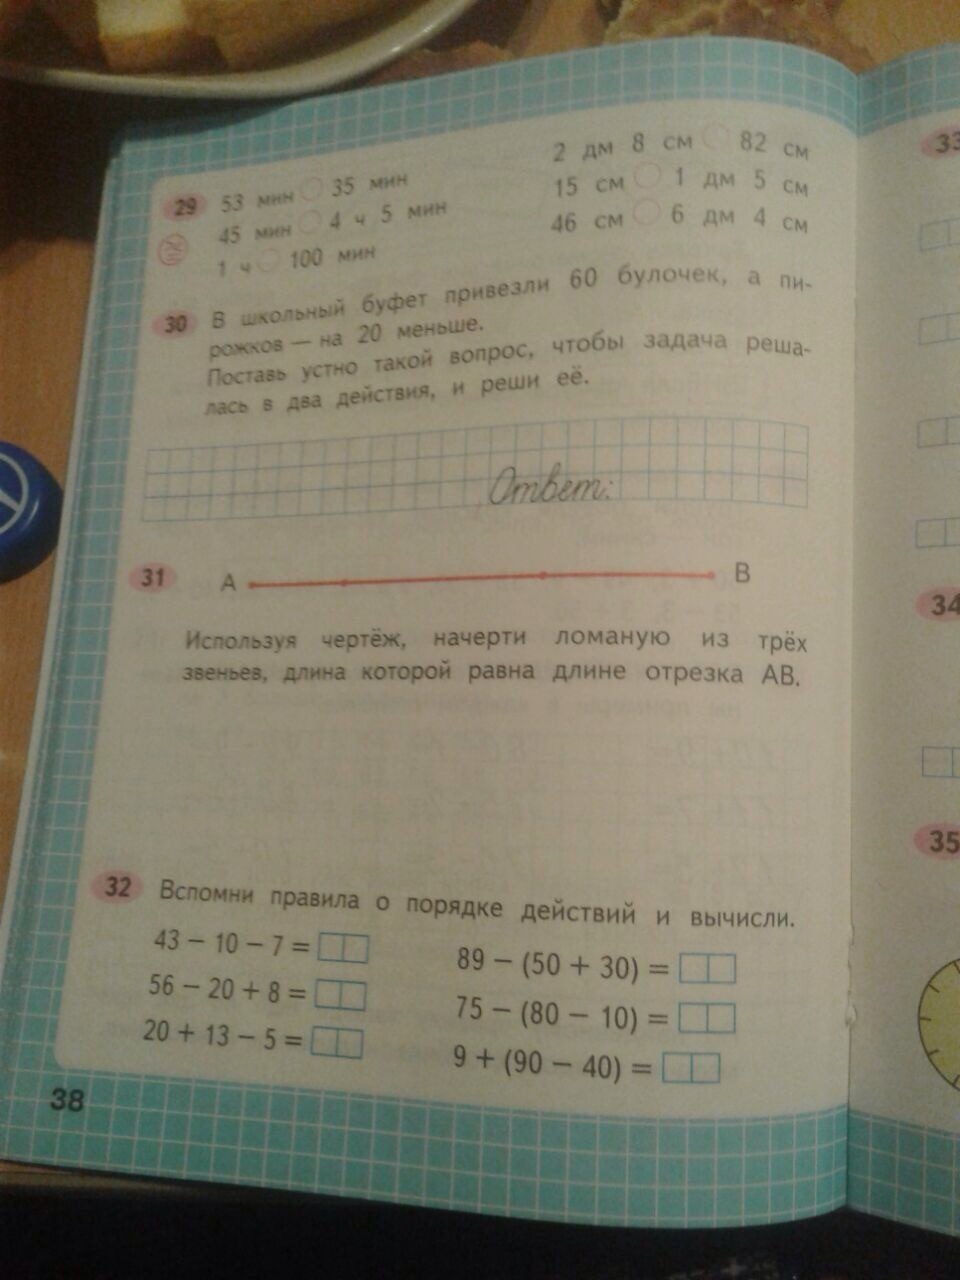 29 53 мин 35 мин
45 мин 4 ч 5 мин
1 ч 100 мин
2 дм 8 см 82 см
15 см 1 дм 5 см
46 см 6 дм 4 см
30 В школьный буфет привезли 60 булочек, а пи-
рожков — на 20 меньше.
Поставь устно такой вопрос, чтобы задача реша-
лась в два действия, и реши её.
Ответ:
31 А В
Используя чертёж, начерти ломаную из трёх
звеньев, длина которой равна длине отрезка АВ.
32 Вспомни правила о порядке действий и вычисли.
43 − 10 − 7 =
56 − 20 + 8 =
20 + 13 − 5 =
89 − (50 + 30) =
75 − (80 − 10) =
9 + (90 − 40) =
38
33
34
35